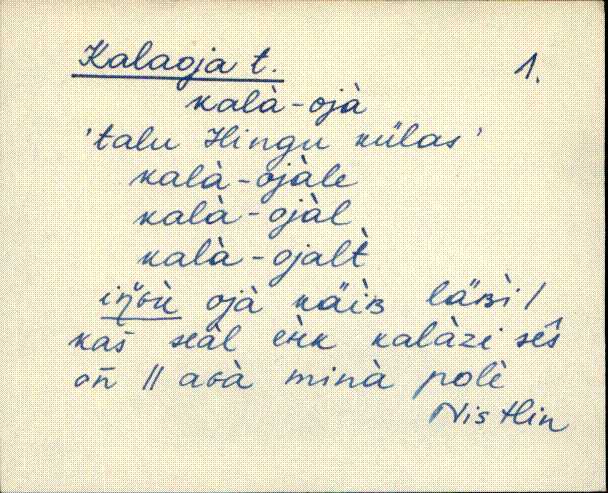 Kalaoja t. 1.
kalà-ojà
'talu Hingu külas'
kalà-ojàle
kalà-ojàl
kalà-ojalt̀
ojà käiʙ läʙ̀i /
kas̄ seàl kalàzi
on̄ // aʙà minà polè
Nis Hin